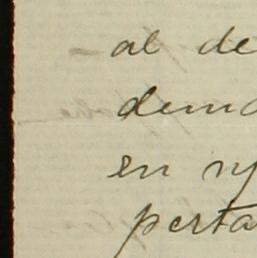 al de
demo
en my
perta